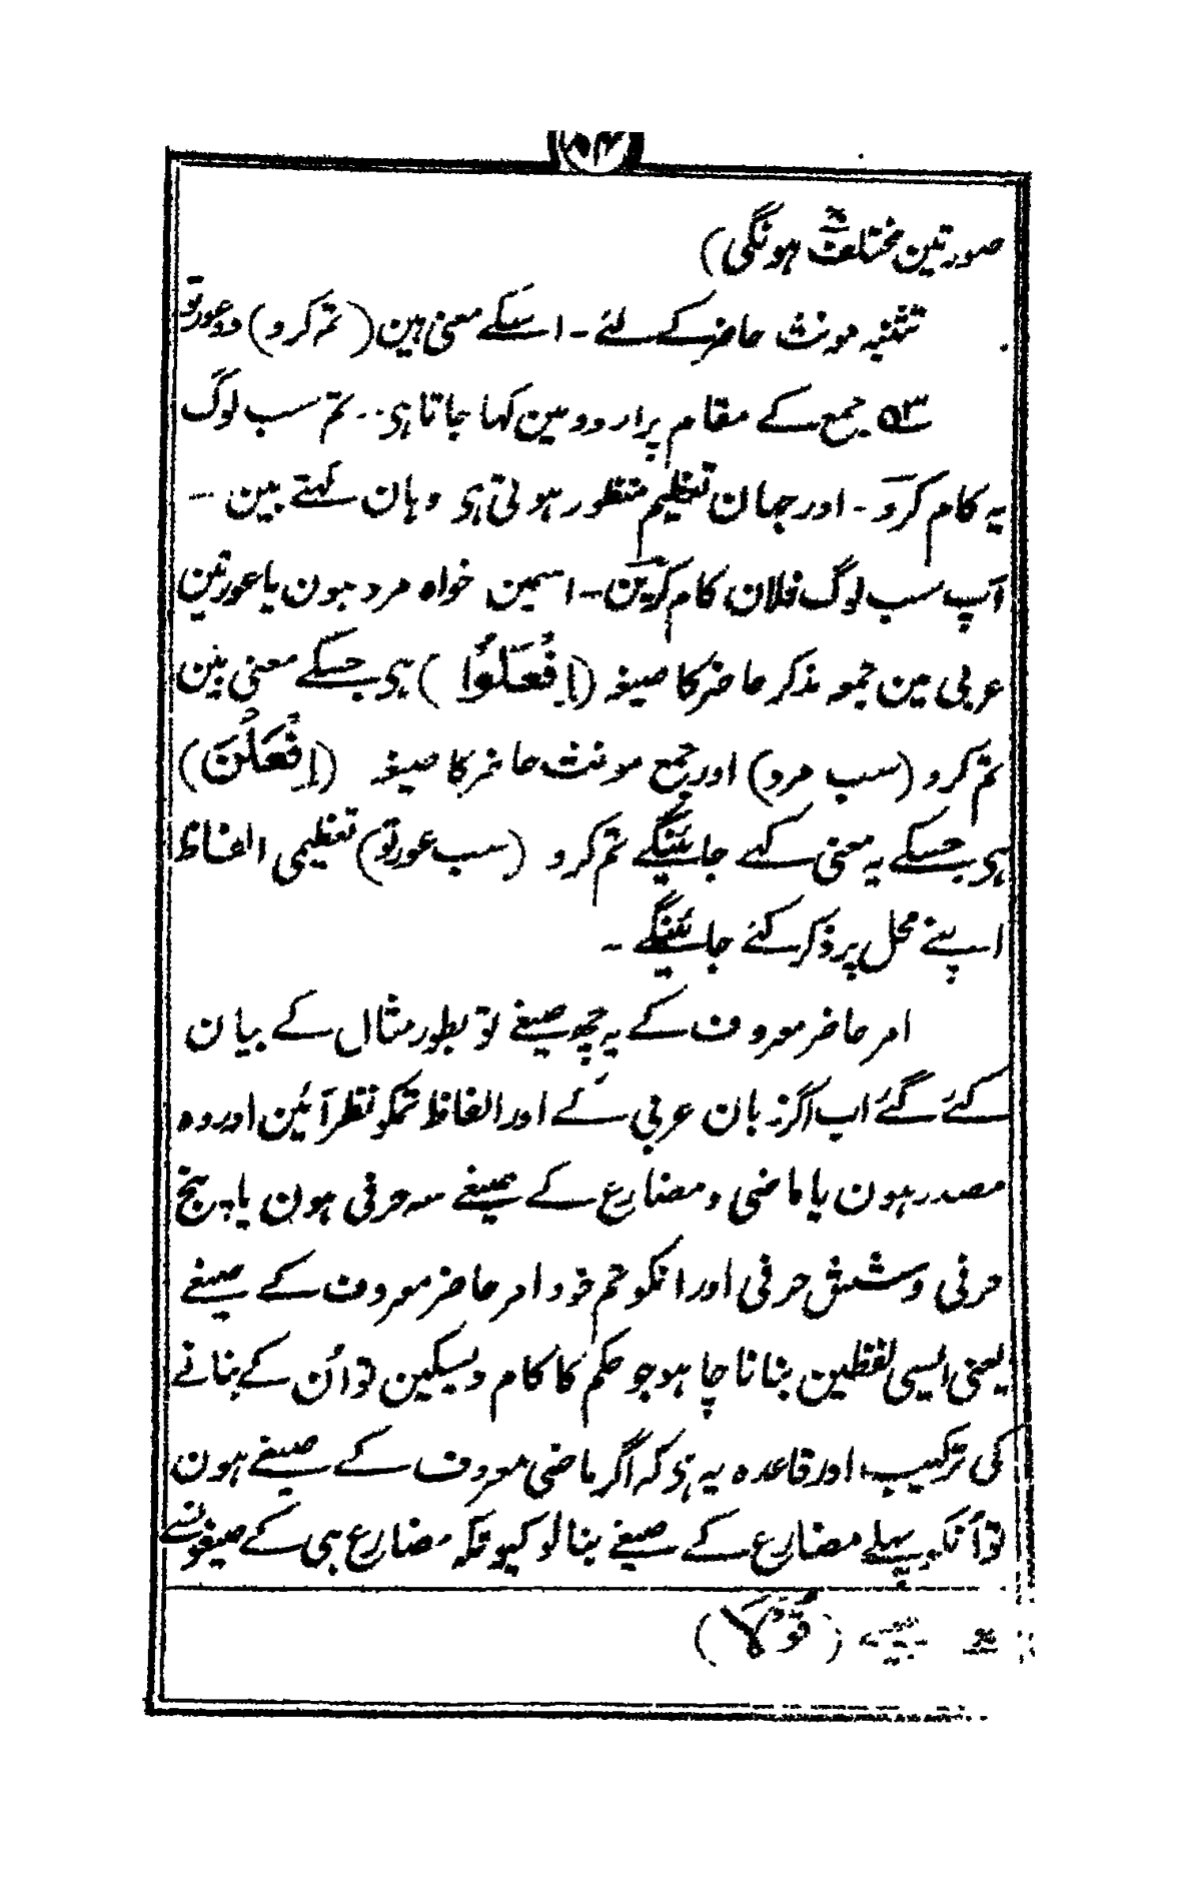 صورتین مختلف ہونگی)
تثنیہ مونث حاضر کے لئے - اسکے معنی ہین (تم کرو) دوعورتو
۵۳ جمع کے مقام پر اردو مین کہا جاتا ہی - تم سب لوگ
یہ کام کرو - اور جہان تعظیم منظور ہوتی ہی وہان کہتے ہین -
آپ سب لوگ فلان کام کرین - اسمین خواہ مرد ہون یا عورتین
عربی مین جمع مذکر حاضر کا صیغہ (اِفْعَلُوْا) ہی جسکے معنی ہین
تم کرو (سب مردو) اور جمع مونث حاضر کا صیغہ (اِفْعَلْنَ)
ہی جسکے یہ معنی کہے جائینگے تم کرو (سب عورتو) تعظیمی الفاظ
اپنے محل پر ذکر کئے جائینگے -
امر حاضر معروف کے یہ چھ صیغے تو بطور مثال کے بیان
کئے گئے اب اگر زبان عربی کے اور الفاظ تمکو نظر آئین اور وہ
مصدر ہون یا ماضی و مضارع کے صیغے سہ حرفی ہون یا پنج
حرفی و شش حرفی اور انکو تم خود امر حاضر معروف کے صیغے
یعنی ایسی لفظین بنانا چاہو جو حکم کا کام دیسکین تو اُن کے بنانے
کی ترکیب اور قاعدہ یہ ہی کہ اگر ماضی معروف کے صیغے ہون
تو اُنکے پہلے مضارع کے صیغے بنالو کیونکہ مضارع ہی کے صیغونسے
جیسے (قُوْلَا)